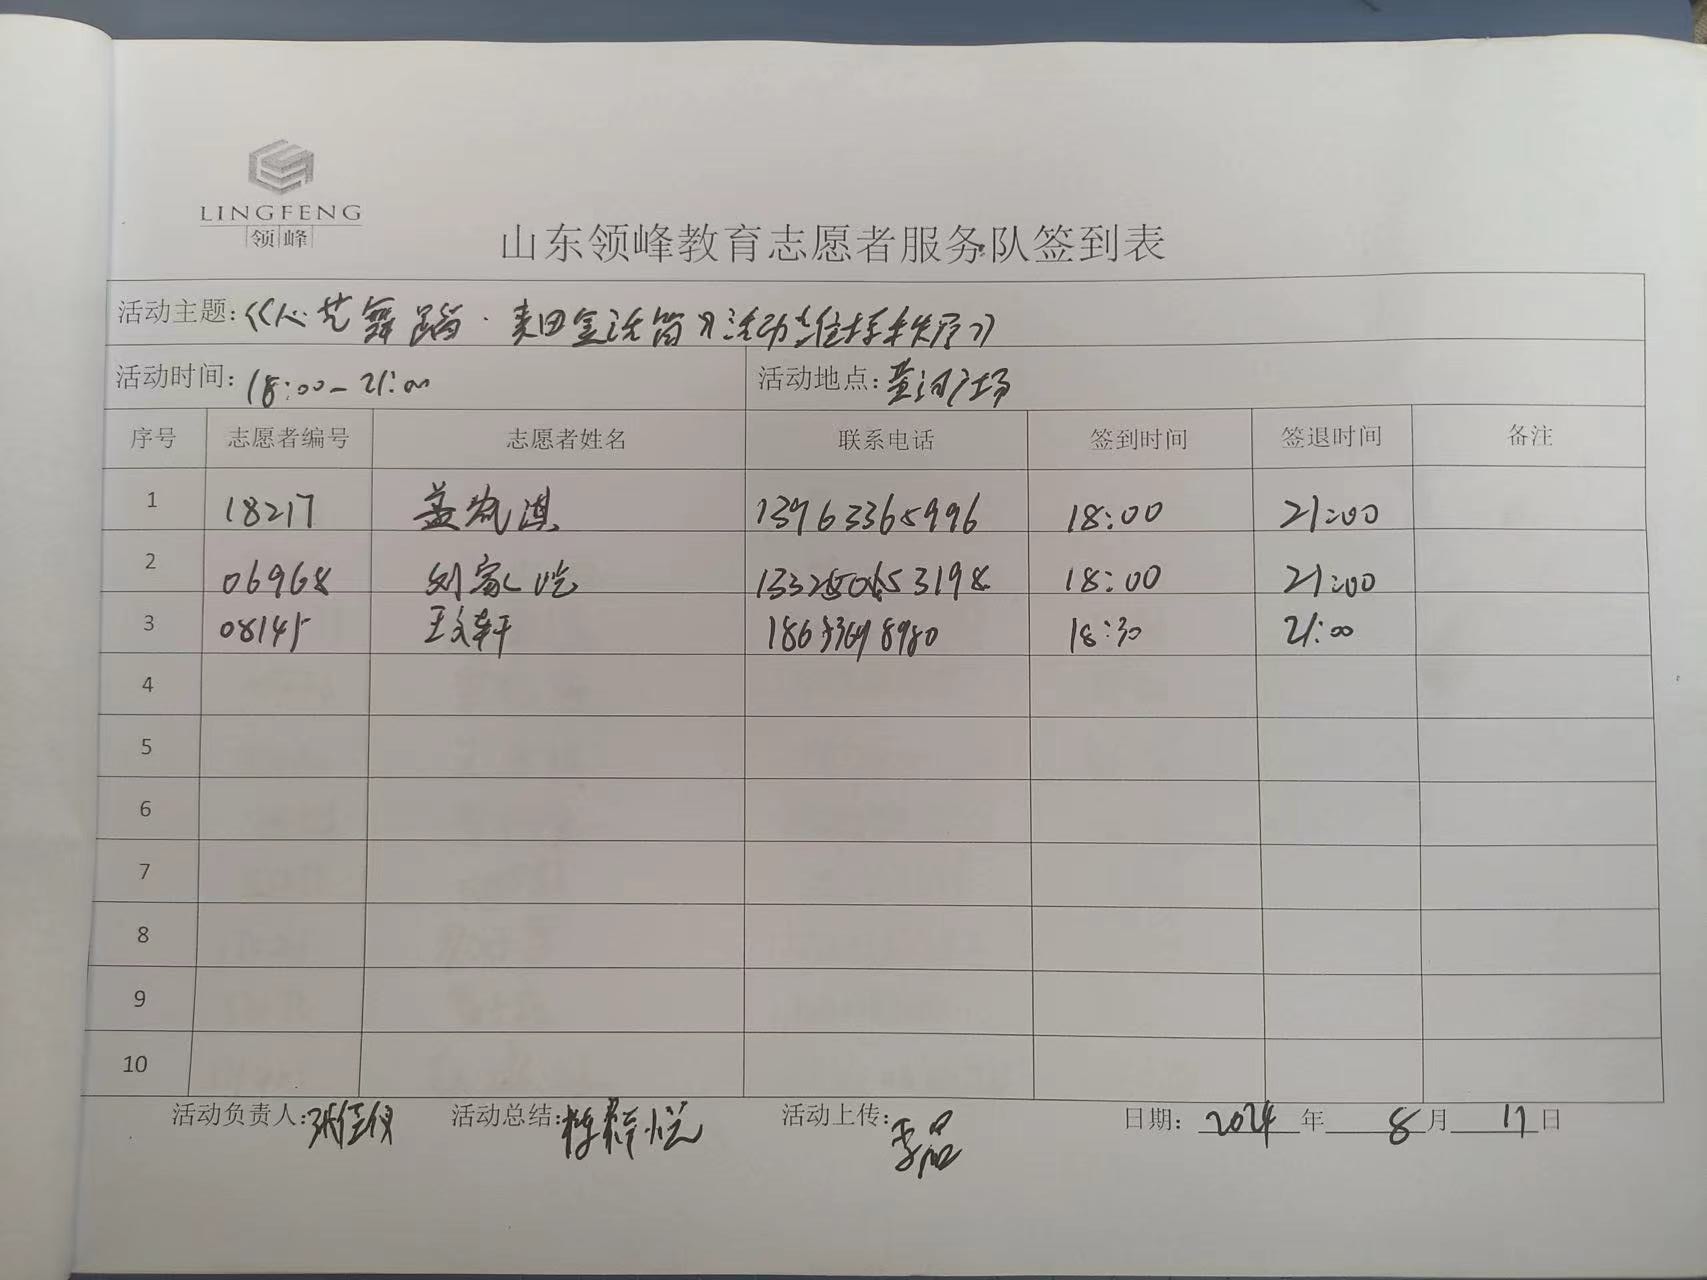 LINGFENG
领峰
山东领峰教育志愿者服务队签到表
活动主题:《心艺舞蹈·麦田金话筒》活动维持秩序》
活动时间: 18:00-21:00 活动地点: 黄河广场
序号 志愿者编号 志愿者姓名 联系电话 签到时间 签退时间 备注
1 18217 13963365996 18:00 21:00
2 06968 刘家 18:00 21:00
3 08145 王文轩 18:30 21:00
4
5
6
7
8
9
10
活动负责人: 张佳仪 活动总结: 活动上传: 日期: 2024 年 8 月 17 日